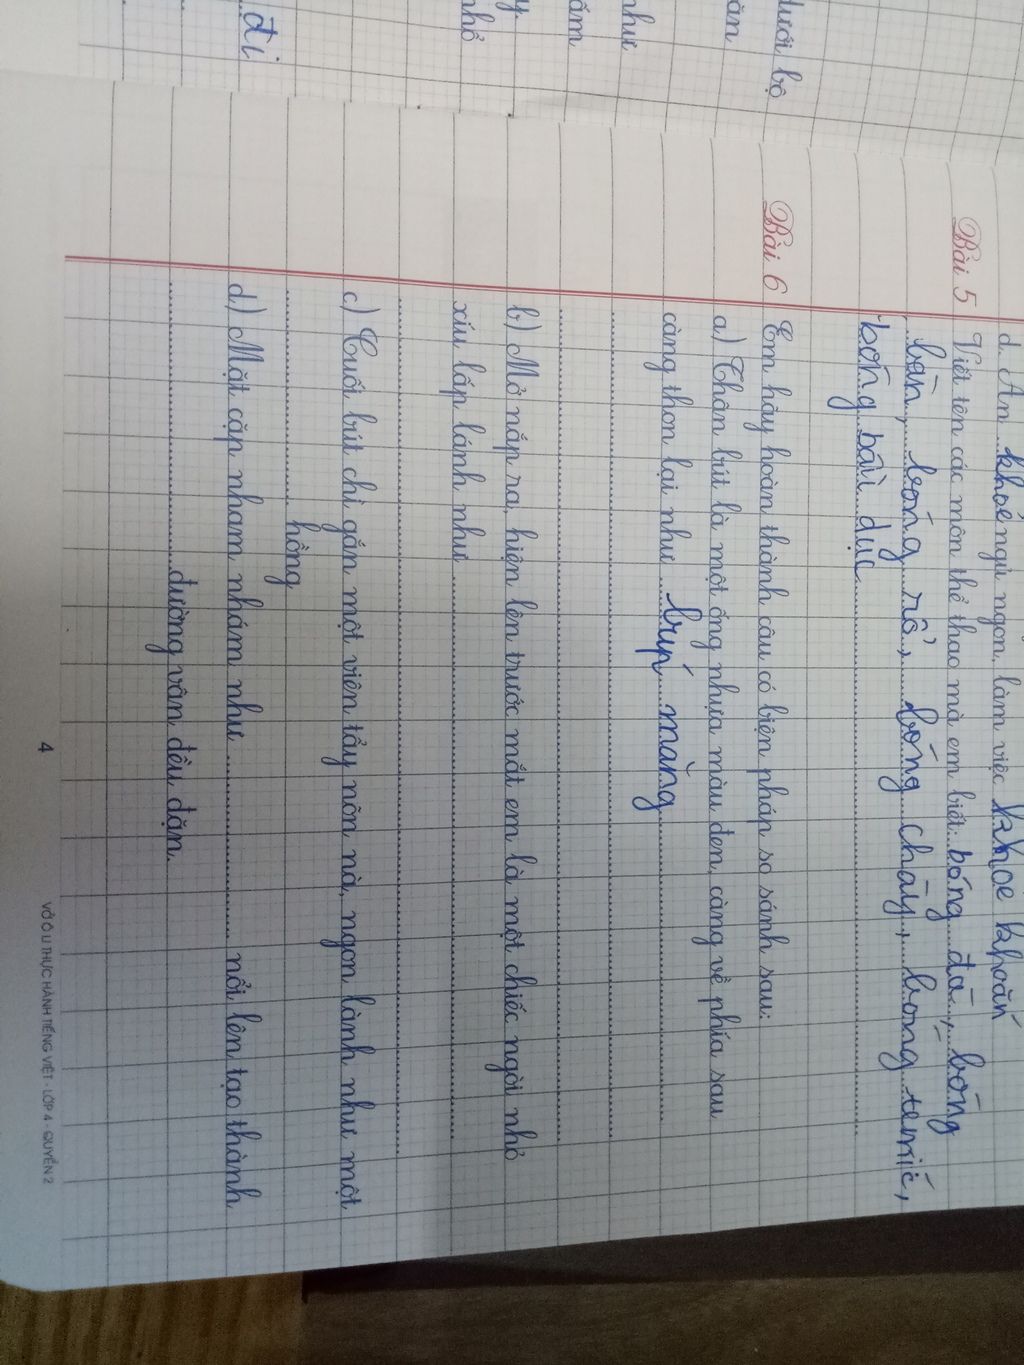 dưới bộ
ăn
như
ấm
y
nhổ
đi
d. An khoẻ ngủ ngon, làm việc khoẻ khoắn
Bài 5 Viết tên các môn thể thao mà em biết: bóng đá, bóng
bàn, bóng rổ, bóng chày, bong temić,
bóng bầu dục
Bài 6 Em hãy hoàn thành câu có biện pháp so sánh sau:
a) Thân bút là một ống nhựa màu đen, càng về phía sau
càng thon lại như búp măng
b) Mở nắp ra, hiện lên trước mắt em là một chiếc ngòi nhỏ
xíu lấp lánh như
c) Cuối bút chì gắn một viên tẩy nõn nà, ngon lành như một
hồng
d) Mặt cặp nham nhám như nổi lên tạo thành
đường vân đều đặn.
4
VỞ Ô LI THỰC HÀNH TIẾNG VIỆT - LỚP 4 - QUYỂN 2